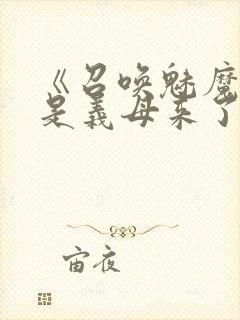 《召唤魅魔
是义母来了
宙夜